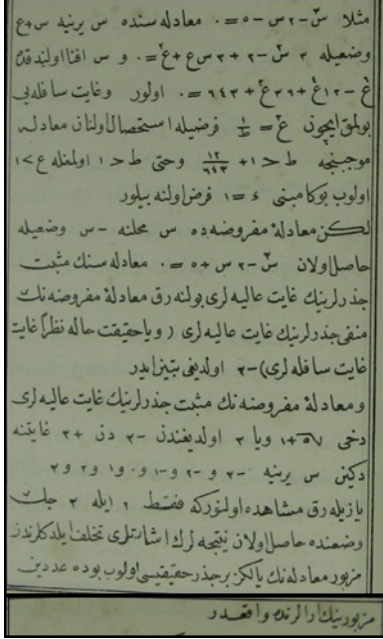 مثلا سّ − ٢ س − ٥ = ٠ معادله سنده س یرینه س + ع
وضعیله ٣ سّ − ٢ + ٣ س ع + عّ = ٠ و س افنا اولندقده
عّ − ١٢ عّ + ٣٦ عّ + ٦٤٣ = ٠ اولور وغایت سافله یی
بولمق ایچون عّ = ١/ط فرضیله استحصال اولنان معادله
موجبنجه ط < ١ + ١٢/٦٤٣ وحتی ط < ١ اولمغله ع > ١
اولوب بوکا مبنی ء = ١ فرض اولنه بیلور
لکن معادلهٔ مفروضه ده س محلنه − س وضعیله
حاصل اولان سّ − ٢ س + ٥ = ٠ معادله سنك مثبت
جذرلرینك غایت عالیه لری بولنه رق معادلهٔ مفروضه نك
منفی جذرلرینك غایت عالیه لری ( ویا حقیقت حاله نظراً غایت
غایت سافله لری) − ٢ اولدیغی بتیزاید‌ر
ومعادلهٔ مفروضه نك مثبت جذرلرینك غایت عالیه لری
دخی √٥ + ١ ویا ٣ اولدیغندن − ٢ دن + ٣ غایتنه
دکین س یرینه − ٣ و − ٢ و − ١ و ٠ و ١ و ٢ و ٣
یازیله رق مشاهده اولنورکه فقط ٢ ایله ٣ جك
وضعنده حاصل اولان نتیجه لرك اشارتلری تخلف ایلدکلرندن
مزبور معادله نك یالکز بر جذر حقیقیسی اولوب بوده عددین
مزبورینك آرالرنده واقعدر